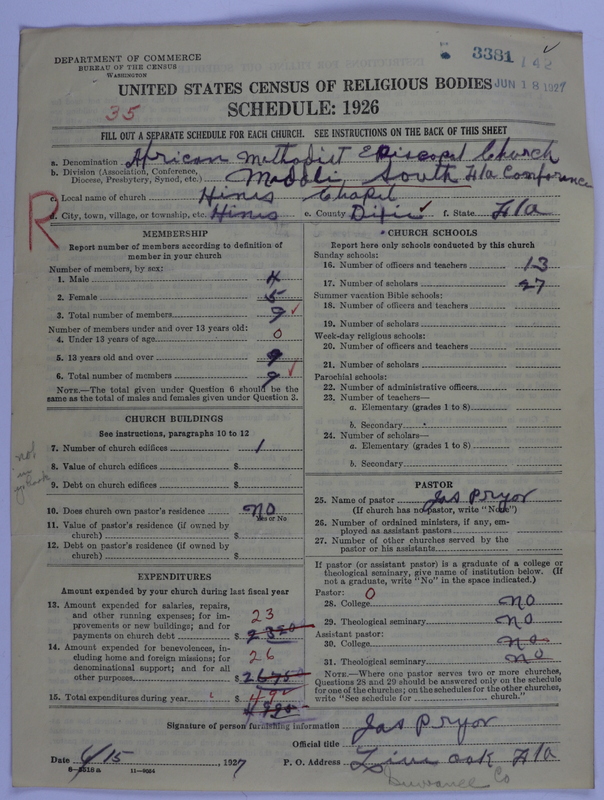 DEPARTMENT OF COMMERCE
BUREAU OF THE CENSUS
WASHINGTON
3381 142
UNITED STATES CENSUS OF RELIGIOUS BODIES JUN 18 1927
35
SCHEDULE: 1926
FILL OUT A SEPARATE SCHEDULE FOR EACH CHURCH. SEE INSTRUCTIONS ON THE BACK OF THIS SHEET
a. Denomination African Methodist Episcopal Church
b. Division (Association, Conference, Diocese, Presbytery, Synod, etc.) South Fla
c. Local name of church Hines Chapel
R
d. City, town, village, or township, etc. Hines e. County Dixie f. State Fla
MEMBERSHIP
Report number of members according to definition of member in your church
Number of members, by sex:
1. Male 4
2. Female 5
3. Total number of members 9
Number of members under and over 13 years old:
4. Under 13 years of age 0
5. 13 years old and over 9
6. Total number of members 9
NOTE.—The total given under Question 6 should be the same as the total of males and females given under Question 3.
CHURCH BUILDINGS
See instructions, paragraphs 10 to 12
not
7. Number of church edifices 1
8. Value of church edifices $
9. Debt on church edifices $
10. Does church own pastor's residence No
Yes or No
11. Value of pastor's residence (if owned by church) $
12. Debt on pastor's residence (if owned by church) $
EXPENDITURES
Amount expended by your church during last fiscal year
13. Amount expended for salaries, repairs, and other running expenses; for improvements or new buildings; and for payments on church debt $ 23
14. Amount expended for benevolences, including home and foreign missions; for denominational support; and for all other purposes $ 26
15. Total expenditures during year $
CHURCH SCHOOLS
Report here only schools conducted by this church
Sunday schools:
16. Number of officers and teachers 13
17. Number of scholars 27
Summer vacation Bible schools:
18. Number of officers and teachers
19. Number of scholars
Week-day religious schools:
20. Number of officers and teachers
21. Number of scholars
Parochial schools:
22. Number of administrative officers
23. Number of teachers—
a. Elementary (grades 1 to 8)
b. Secondary
24. Number of scholars—
a. Elementary (grades 1 to 8)
b. Secondary
PASTOR
25. Name of pastor Jas Pryor
(If church has no pastor, write "None")
26. Number of ordained ministers, if any, employed as assistant pastors
27. Number of other churches served by the pastor or his assistants
If pastor (or assistant pastor) is a graduate of a college or theological seminary, give name of institution below. (If not a graduate, write "No" in the space indicated.)
Pastor: 0
28. College No
29. Theological seminary No
Assistant pastor:
30. College No
31. Theological seminary No
NOTE.—Where one pastor serves two or more churches, Questions 28 and 29 should be answered only on the schedule for one of the churches; on the schedules for the other churches, write "See schedule for ........ church."
Signature of person furnishing information Jas Pryor
Official title
Date 4/15, 1927 P. O. Address Live oak Fla
8-5518a 11-9064
Suwanee Co